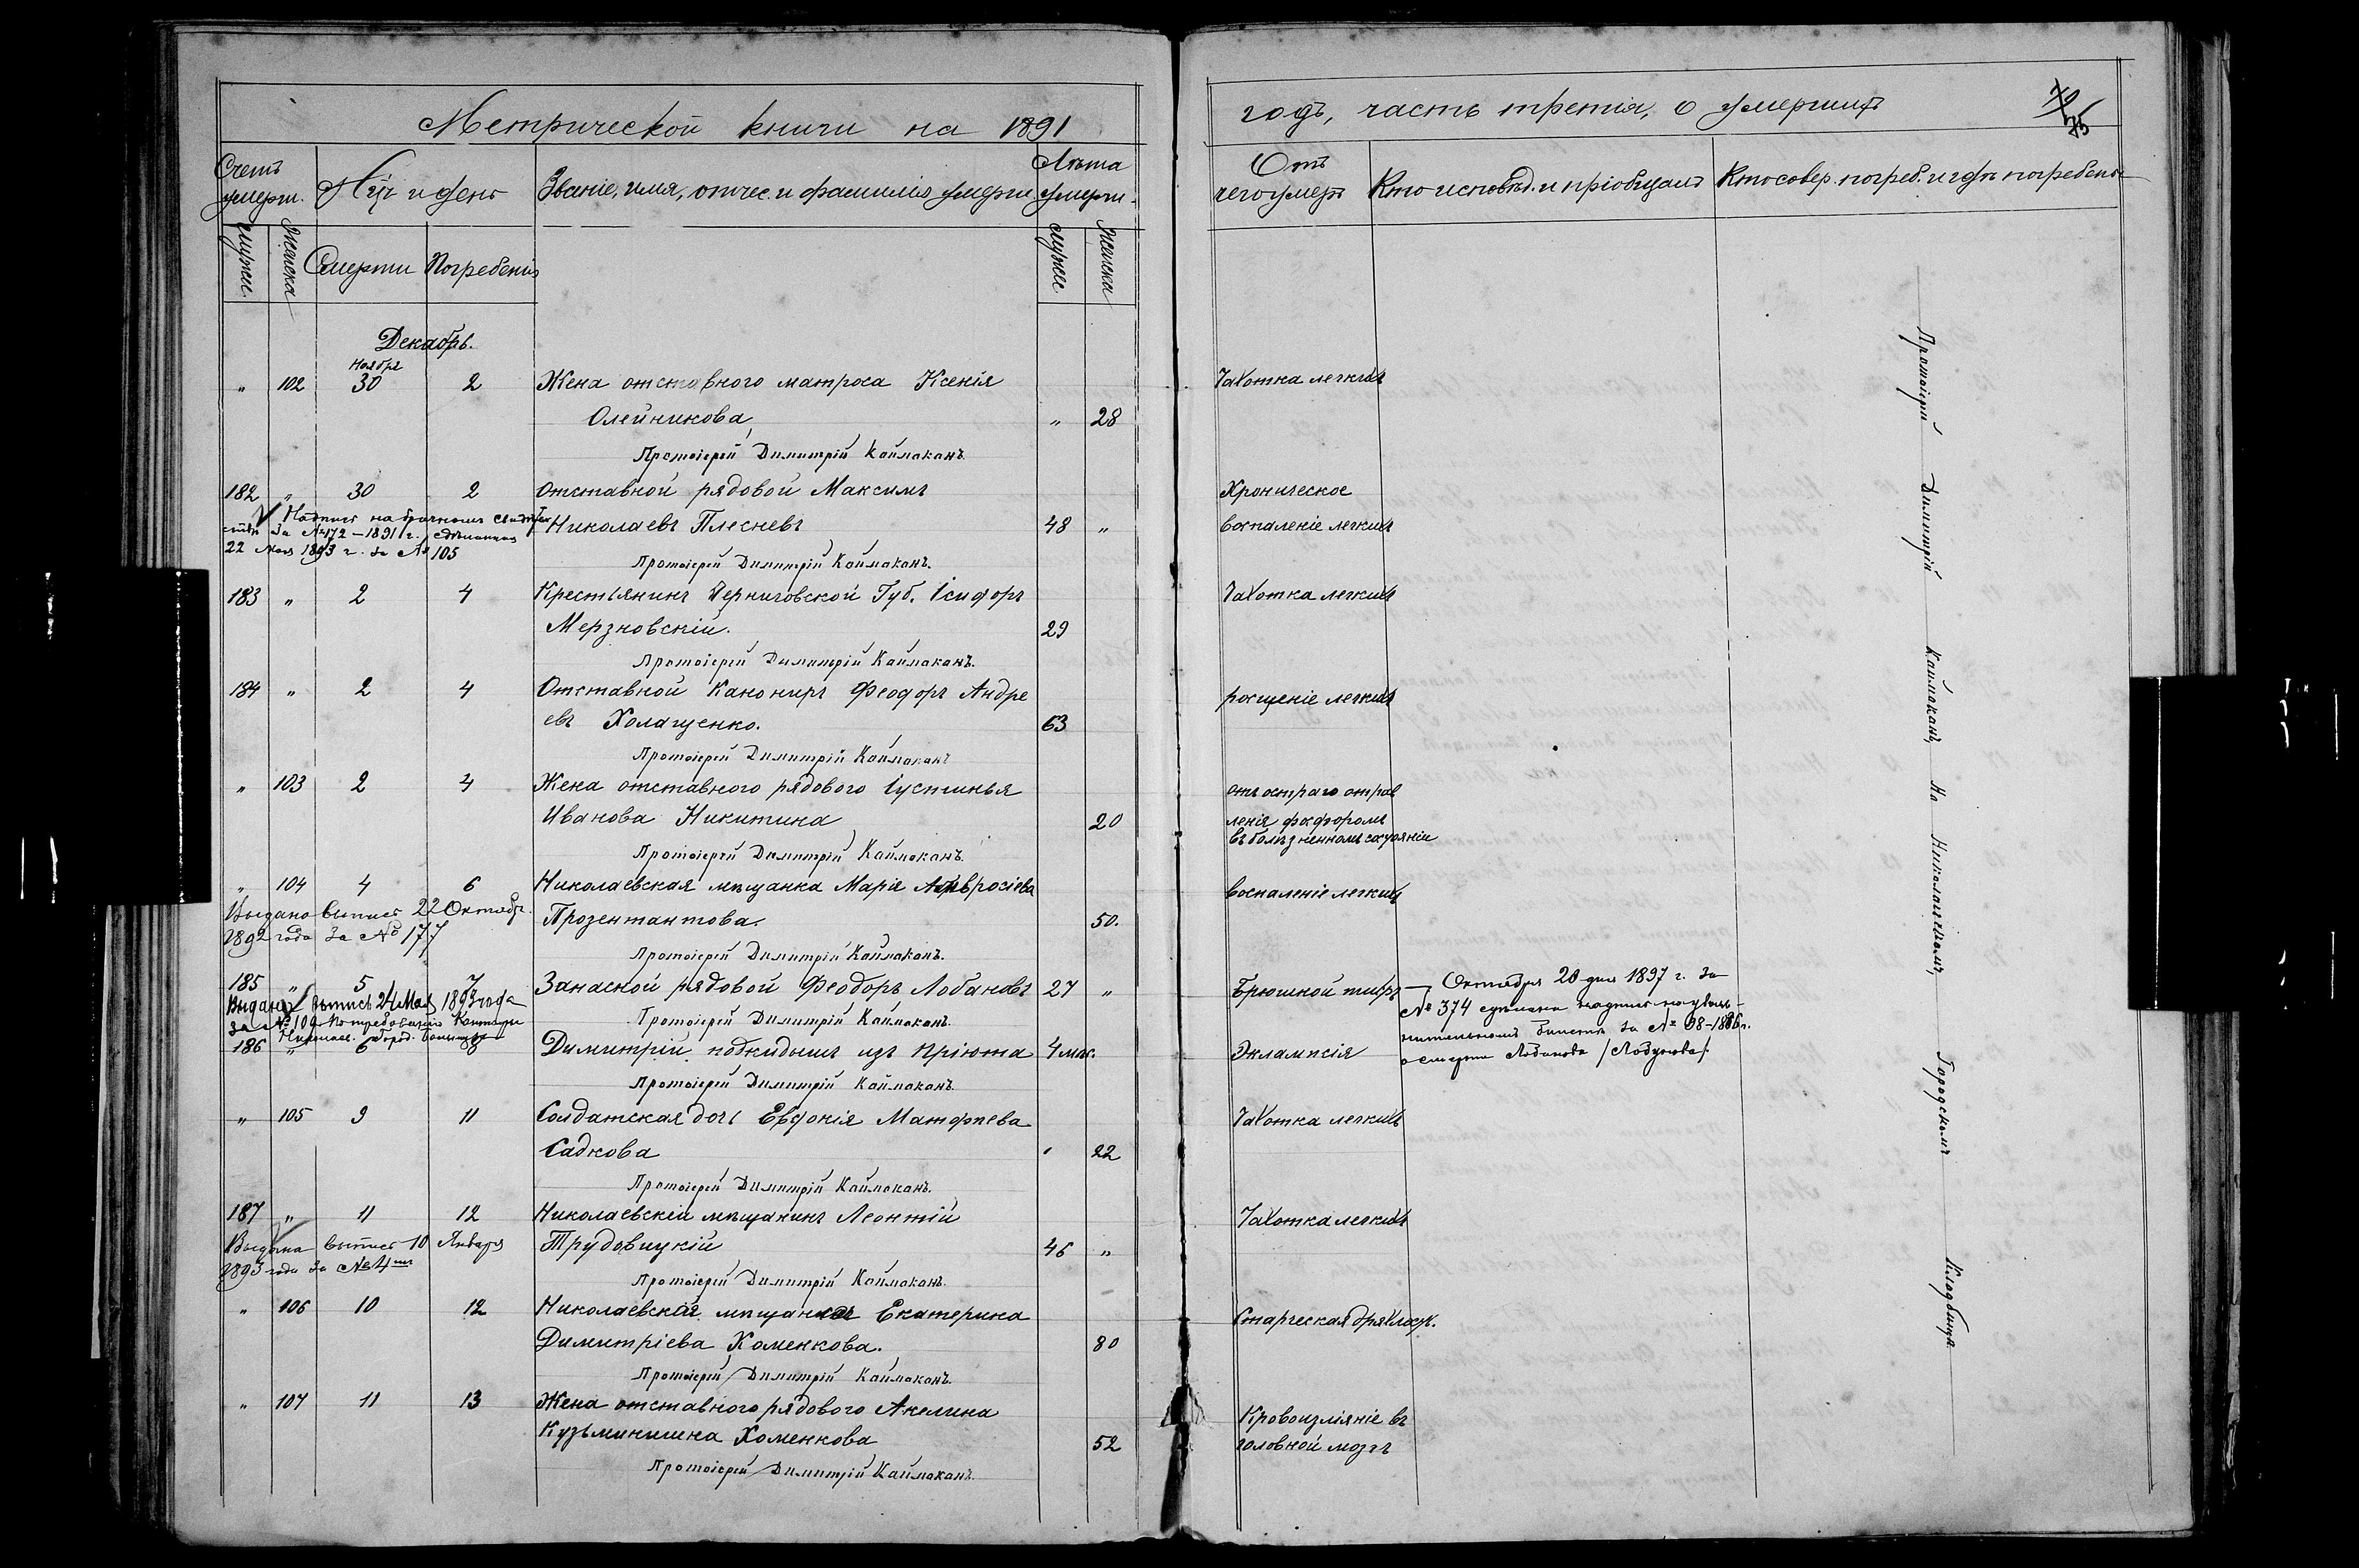 Метрической книги на 1891
годъ, часть третія, о умершихъ
75
Счетъ умерш.
М҃ць и день
Званіе, имя, отчес. и фамилія умерш.
Лѣта умерш.
Отъ чего умеръ
Кто исповѣд. и пріобщалъ
Кто совер. погреб. и гдѣ погребены
мужес.
женска
Смерти
Погребенія
мужес.
женска
Декабрь.
Ноября
" 102 30 2 Жена отставного матроса Ксенія Чахотка легкихъ
Олейникова " 28
Протоіерей Димитрій Каймаканъ.
182 " 30 2 Отставной рядовой Максимъ Хроническое
Николаевъ Плесневъ 48 " воспаленіе легкихъ
Надпись на брачномъ свидѣтель
ствѣ за №172 – 1891 г. сдѣланная
22 Мая 1893 г. за № 105
Протоіерей Димитрій Каймаканъ.
183 " 2 4 Крестьянинъ Черниговской Губ. Ісидоръ Чахотка легкихъ
Мерзновскій. 29
Протоіерей Димитрій Каймаканъ.
184 " 2 4 Отставной Канониръ Феодоръ Андре росщеніе легкихъ
евъ Холащенко. 63
Протоіерей Димитрій Каймаканъ
" 103 2 4 Жена отставного рядового Іустинья отъ остраго отрав
Иванова Никитина 20 ленія фосфоромъ
въ болѣзненномъ состояніи
Протоіерей Димитрій Каймаканъ.
" 104 4 6 Николаевская мѣщанка Марія Амвросіева воспаленіе легкихъ
Выдано выпись 22 Октябр.
1892 года за № 177
Прозентантова. 50.
Протоіерей Димитрій Каймаканъ.
185 " 5 7 Запасной рядовой Феодоръ Лобановъ 27 " Брюшной тифъ
— Октября 20 дня 1897 г. за
№ 374 сдѣлана надпись на уволь-
нительномъ билетѣ за № 98–1886 г.
о смерти Лобанова /Лобунова/.
Выдана выпись 24 Мая 1893 года
за № 109 По требованію Конторы
Николаев. Город. больницы
Протоіерей Димитрій Каймаканъ.
186 " 6 8 Димитрій подкидышъ изъ пріюта 4 мѣс. Эклампсія
Протоіерей Димитрій Каймаканъ.
" 105 9 11 Солдатская дочь Евдокія Матфѣева Чахотка легкихъ
Садкова " 22
Протоіерей Димитрій Каймаканъ.
187 " 11 12 Николаевскій мѣщанинъ Леонтій Чахотка легкихъ
Выдана выпись 10 Января
1893 года за № 4мъ
Трудовицкій 46 "
Протоіерей Димитрій Каймаканъ.
" 106 10 12 Николаевская мѣщанка Екатерина Старческая дряхлость.
Димитріева Коменкова. 80
Протоіерей Димитрій Каймаканъ.
" 107 11 13 Жена отставного рядового Акелина Кровоизліяніе въ
Кузьминишна Хоменкова 52 головной мозгъ
Протоіерей Димитрій Каймаканъ.
Протоіерей Димитрій Каймаканъ, На Николаевскомъ, Городскомъ Кладбищѣ